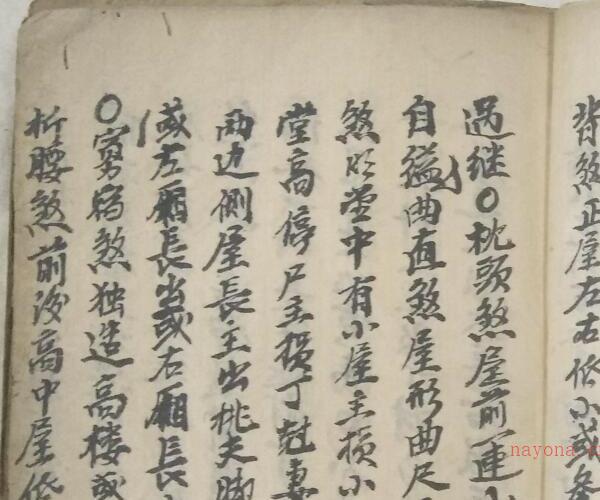 背煞正屋左右低小或
过继〇枕头煞屋前一连
自缢曲直煞屋形曲尺
煞明堂中有小屋主损小
堂高停尸主损丁尅妻
两边侧屋長主出挑夫脚
或左廂長出或右廂長
〇寡宿煞独造高楼或
折腰煞前後高中屋低
nayona